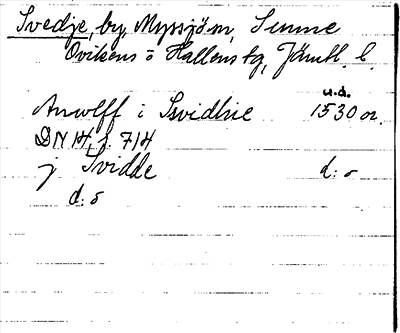 Svedje, by, Myssjöm, Sunne
Ovikens o Hallens tg, Jämtl. l.
u.d.
Anwlff i Svidhie 1530 or.
DN 14, s. 714
j Svidde d:o
d:o